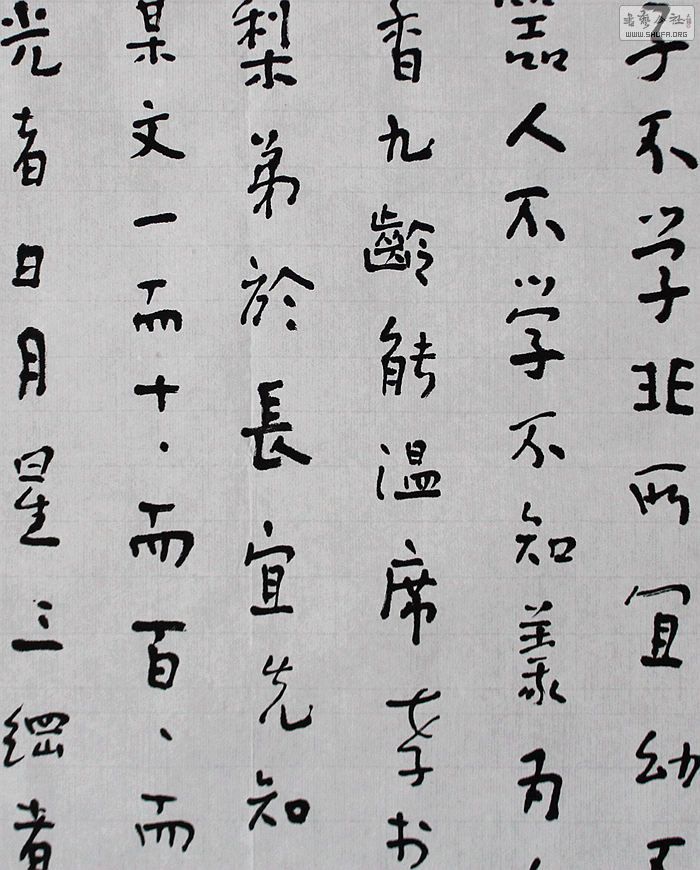 子不学非所宜幼不
器人不学不知義为人
香九齡能温席孝於
梨弟於長宜先知
某文一而十、而百、而
光者日月星三綱者
書藝公社
WWW.SHUFA.ORG